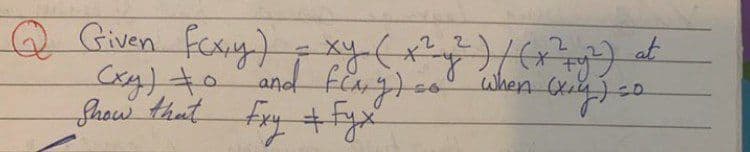 Q Given f(x,y) = xy (x²-y²)/(x²+y²) at
(xy) ≠ 0 and f(x,y) = 0 when (x,y) = 0
Show that fxy ≠ fyx